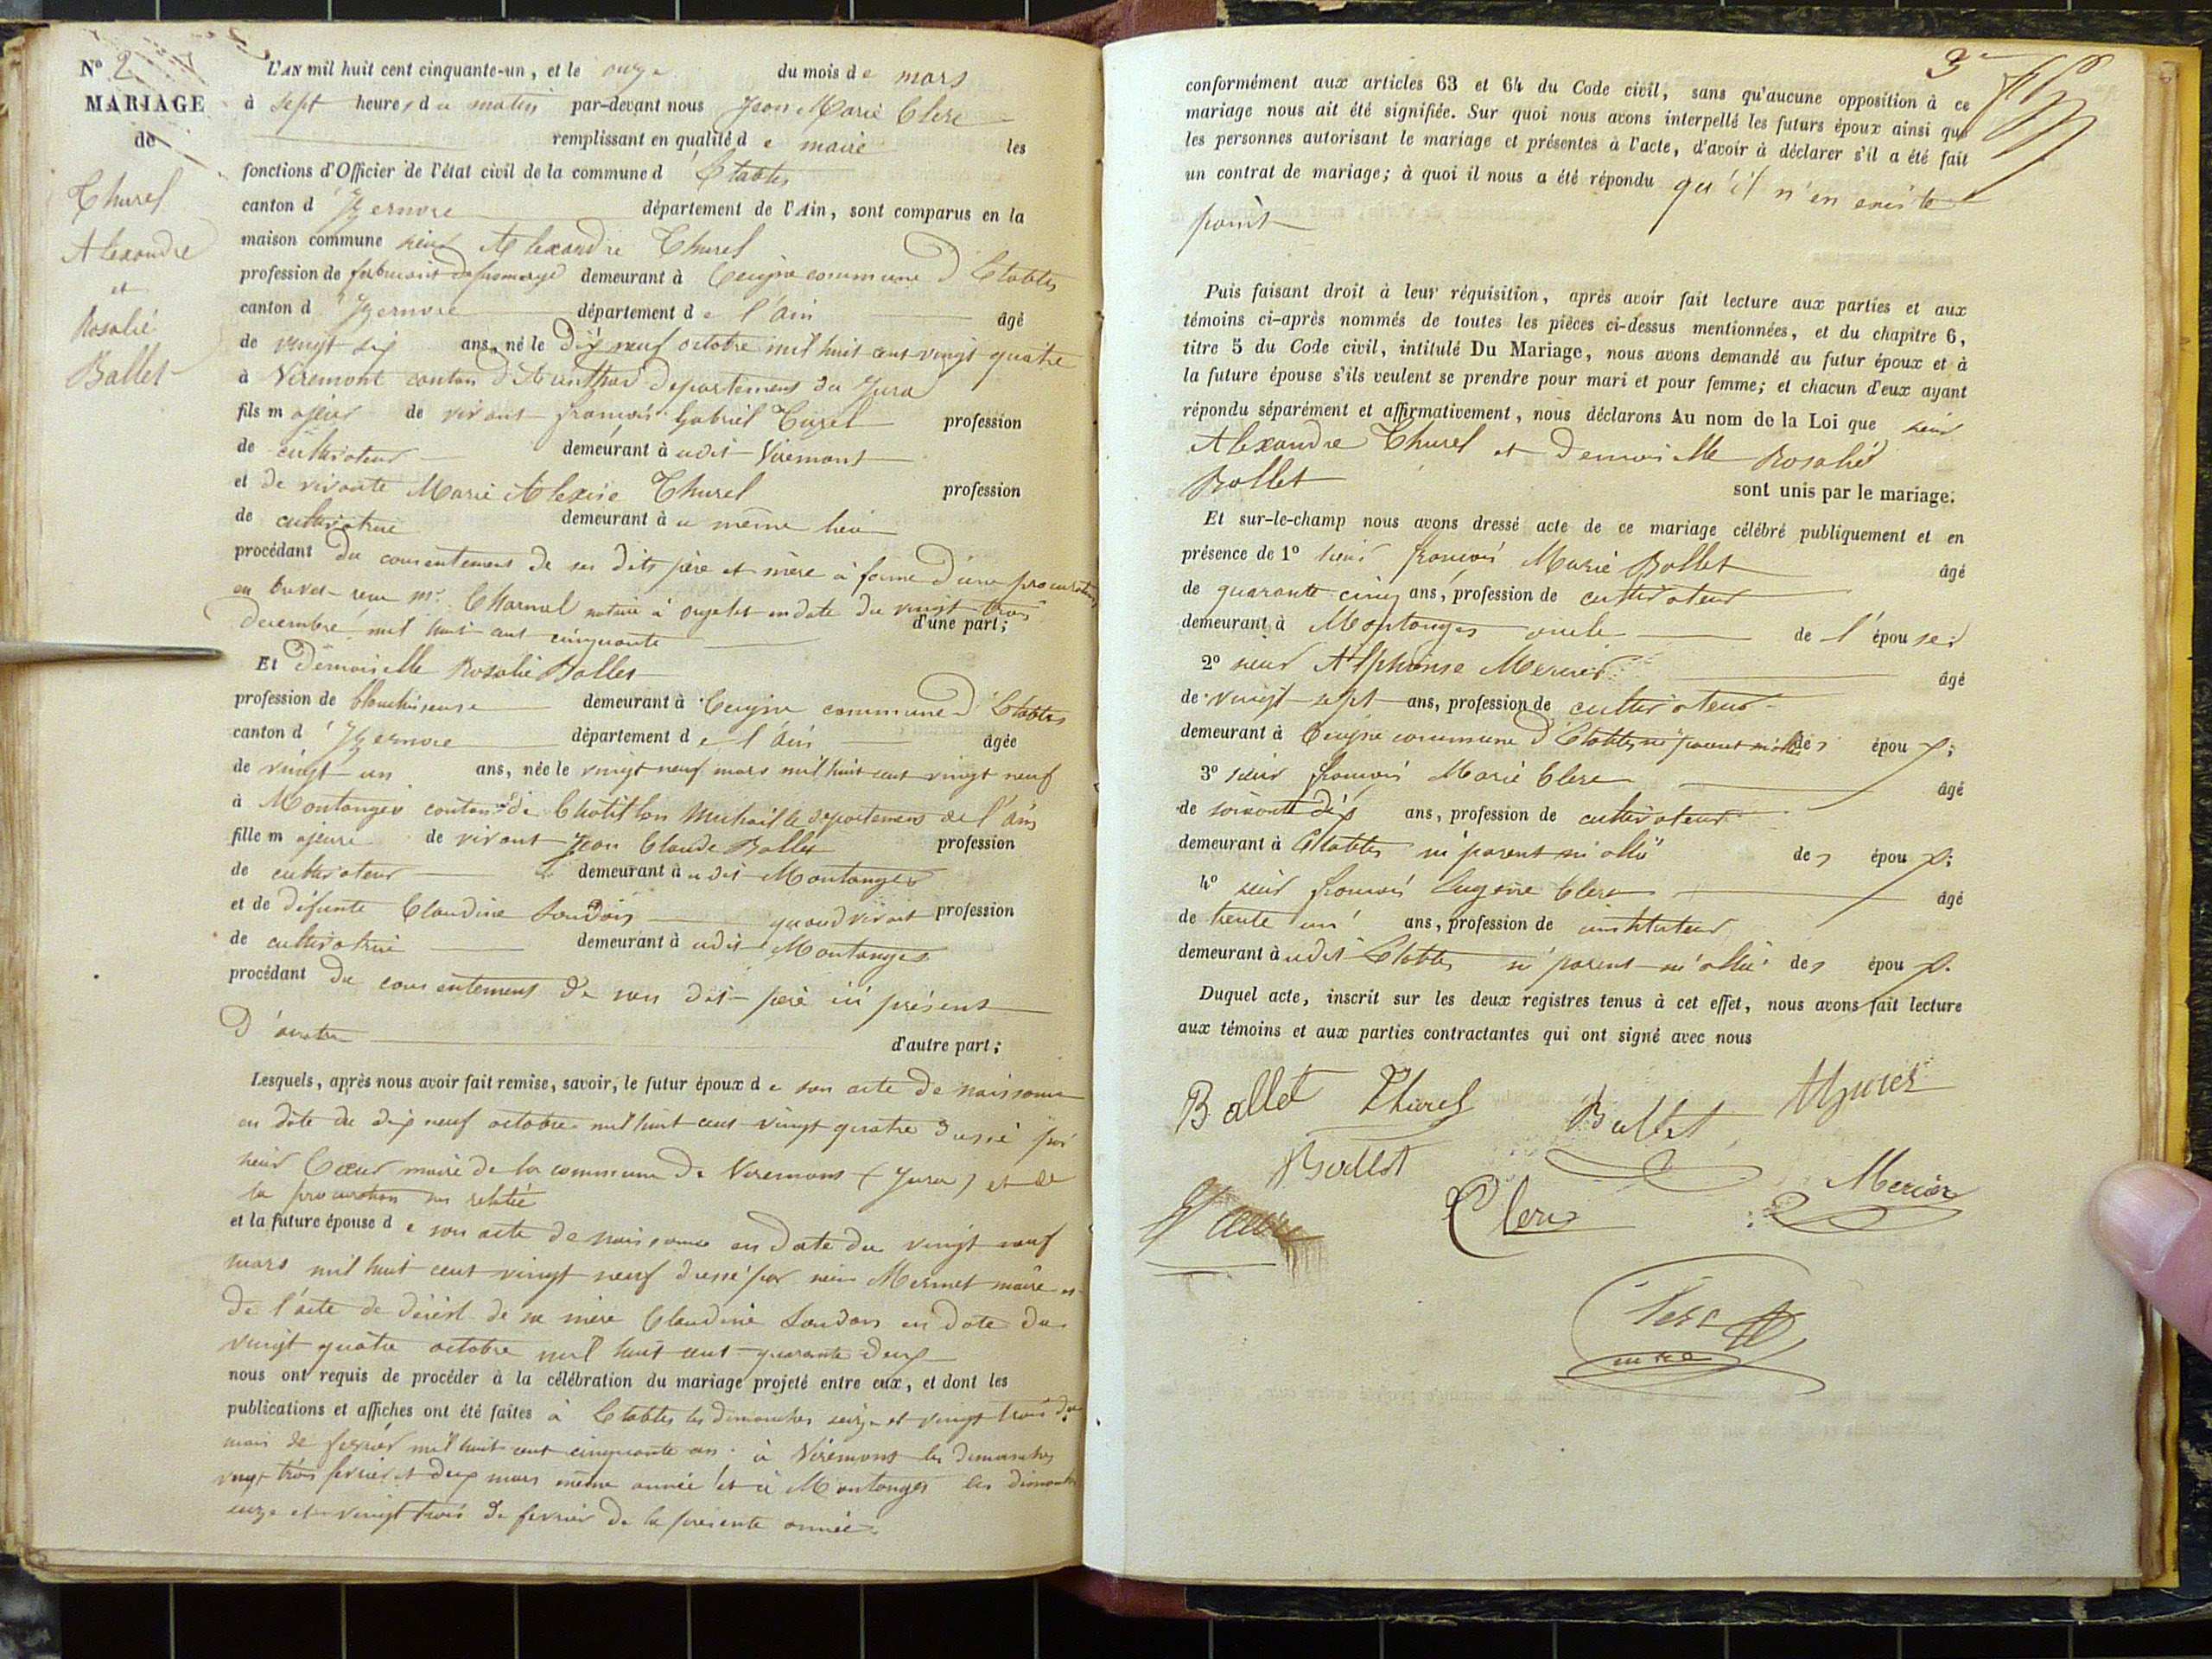 N° 2
MARIAGE
de
Thurel
Alexandre
et
Rosalie
Ballet
L'AN mil huit cent cinquante-un, et le onze du mois de mars
à sept heures du matin par-devant nous Jean Marie Clerc
remplissant en qualité de maire les
fonctions d'Officier de l'état civil de la commune d'Etables
canton d'Izernore département de l'Ain, sont comparus en la
maison commune sieur Alexandre Thurel
profession de fabricant de fromage demeurant à Ceignes commune d'Etables
canton d'Izernore département de l'Ain âgé
de vingt six ans, né le dix neuf octobre mil huit cent vingt quatre
à Viremont canton d'Arinthod département du Jura
fils majeur de vivant françois Gabriel Turel profession
de cultivateur demeurant audit Viremont
et de vivante Marie Alexise Thurel profession
de cultivatrice demeurant au même lieu
procédant du consentement de ses dits père et mère à forme d'une procuration
en brevet reçu Mr. Charnal notaire à orgelet en date du vingt trois
décembre mil huit cent cinquante d'une part;
Et Demoiselle Rosalie Ballet
profession de blanchisseuse demeurant à Ceignes commune d'Etables
canton d'Izernore département de l'Ain âgée
de vingt un ans, née le vingt neuf mars mil huit cent vingt neuf
à Montanges canton de Chatillon Michaille département de l'ain
fille majeure de vivant Jean Claude Ballet profession
de cultivateur demeurant audit Montanges
et de défunte Claudine quand vivait profession
de cultivatrice demeurant audit Montanges
procédant du consentement de son dit père ici présent
d'autre part;
Lesquels, après nous avoir fait remise, savoir, le futur époux de son acte de naissance
en date du dix neuf octobre mil huit cent vingt quatre dressé par
sieur maire de la commune de Viremont (Jura) et de
la procuration sus relatée
et la future épouse de son acte de naissance en date du vingt neuf
mars mil huit cent vingt neuf dressé par sieur Mermet maire et
de l'acte de décès de sa mère Claudine en date du
vingt quatre octobre mil huit cent quarante deux
nous ont requis de procéder à la célébration du mariage projeté entre eux, et dont les
publications et affiches ont été faites à Etables les dimanches seize et vingt trois du
mois de fevrier mil huit cent cinquante un. à Viremont les dimanches
vingt trois fevrier et deux mars même année et à Montanges les dimanches
seize et vingt trois de fevrier de la présente année.
3
conformément aux articles 63 et 64 du Code civil, sans qu'aucune opposition à ce
mariage nous ait été signifiée. Sur quoi nous avons interpellé les futurs époux ainsi que
les personnes autorisant le mariage et présentes à l'acte, d'avoir à déclarer s'il a été fait
un contrat de mariage; à quoi il nous a été répondu qu'il n'en existe
point
Puis faisant droit à leur réquisition, après avoir fait lecture aux parties et aux
témoins ci-après nommés de toutes les pièces ci-dessus mentionnées, et du chapitre 6,
titre 5 du Code civil, intitulé Du Mariage, nous avons demandé au futur époux et à
la future épouse s'ils veulent se prendre pour mari et pour femme; et chacun d'eux ayant
répondu séparément et affirmativement, nous déclarons Au nom de la Loi que sieur
Alexandre Thurel et Demoiselle Rosalie
Ballet sont unis par le mariage.
Et sur-le-champ nous avons dressé acte de ce mariage célébré publiquement et en
présence de 1° sieur françois Marie Ballet âgé
de quarante cinq ans, profession de cultivateur
demeurant à Montanges oncle de l'épouse;
2° sieur Alphonse Mercier âgé
de vingt sept ans, profession de cultivateur
demeurant à Ceignes commune d'Etables ni parent ni allié des époux;
3° sieur françois Marie Clerc âgé
de soixante dix ans, profession de cultivateur
demeurant à Etables ni parent ni allié des époux;
4° sieur françois Eugène Clerc âgé
de trente un ans, profession de instituteur
demeurant audit Etables ni parent ni allié des époux.
Duquel acte, inscrit sur les deux registres tenus à cet effet, nous avons fait lecture
aux témoins et aux parties contractantes qui ont signé avec nous
Ballet Thurel Ballet
Ballet Mercier
Clerc
Clerc
maire